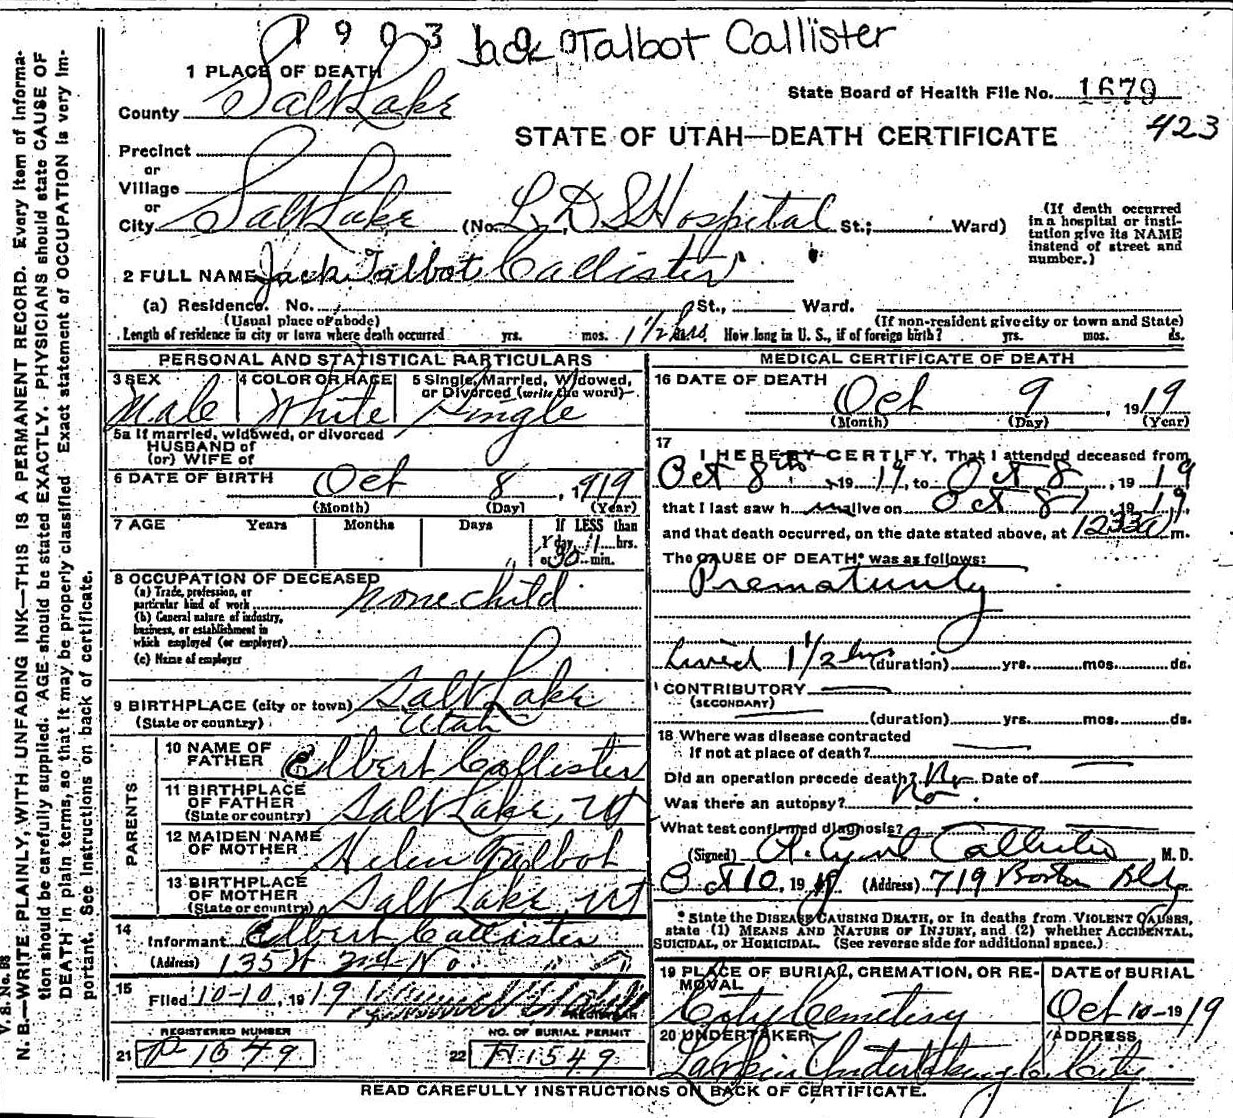 1903 Jack Talbot Callister
1 PLACE OF DEATH
State Board of Health File No. 1679
County Salt Lake
423
STATE OF UTAH—DEATH CERTIFICATE
Precinct
or
Village
or
City Salt Lake (No. L.D.S Hospital St.; Ward)
(If death occurred in a hospital or institution give its NAME instead of street and number.)
2 FULL NAME Jack Talbot Callister
(a) Residence. No. St., Ward.
(Usual place of abode) (If non-resident give city or town and State)
Length of residence in city or town where death occurred yrs. mos. 1 1/2 hrs ds. How long in U. S., if of foreign birth? yrs. mos. ds.
PERSONAL AND STATISTICAL PARTICULARS
3 SEX 4 COLOR OR RACE 5 Single, Married, Widowed, or Divorced (write the word)
Male White Single
5a If married, widowed, or divorced
HUSBAND of
(or) WIFE of
6 DATE OF BIRTH Oct 8, 1919
(Month) (Day) (Year)
7 AGE Years Months Days If LESS than
1 day, 1 hrs.
or 30 min.
8 OCCUPATION OF DECEASED
(a) Trade, profession, or
particular kind of work none child
(b) General nature of industry,
business, or establishment in
which employed (or employer)
(c) Name of employer
9 BIRTHPLACE (city or town) Salt Lake
(State or country) Utah
PARENTS
10 NAME OF FATHER Elbert Callister
11 BIRTHPLACE OF FATHER (State or country) Salt Lake, Ut
12 MAIDEN NAME OF MOTHER Helen Talbot
13 BIRTHPLACE OF MOTHER (State or country) Salt Lake, Ut
14 Informant Elbert Callister
(Address) 135 W 2nd No.
15 Filed 10-10, 1919
REGISTRAR
REGISTERED NUMBER NO. OF BURIAL PERMIT
21 P 1549 22 H 1549
MEDICAL CERTIFICATE OF DEATH
16 DATE OF DEATH Oct 9, 1919
(Month) (Day) (Year)
17 I HEREBY CERTIFY, That I attended deceased from
Oct 8th, 1919, to Oct 8, 1919
that I last saw h im alive on Oct 8, 1919,
and that death occurred, on the date stated above, at 1233a m.
The CAUSE OF DEATH* was as follows:
Prematurity
Lived 1 1/2 hrs (duration) yrs. mos. ds.
CONTRIBUTORY
(SECONDARY)
(duration) yrs. mos. ds.
18 Where was disease contracted
If not at place of death?
Did an operation precede death? No Date of
Was there an autopsy? No
What test confirmed diagnosis?
(Signed) A. Cyril Callister M. D.
Oct 10, 1919 (Address) 719 Boston Bldg
* State the DISEASE CAUSING DEATH, or in deaths from VIOLENT CAUSES,
state (1) MEANS AND NATURE OF INJURY, and (2) whether ACCIDENTAL,
SUICIDAL, or HOMICIDAL. (See reverse side for additional space.)
19 PLACE OF BURIAL, CREMATION, OR REMOVAL DATE of BURIAL
City Cemetery Oct 10-1919
20 UNDERTAKER ADDRESS
Larkin Undertaking Co City
READ CAREFULLY INSTRUCTIONS ON BACK OF CERTIFICATE.
V. S. No. 98
N. B.—WRITE PLAINLY, WITH UNFADING INK—THIS IS A PERMANENT RECORD. Every item of informa-
tion should be carefully supplied. AGE should be stated EXACTLY. PHYSICIANS should state CAUSE OF
DEATH in plain terms, so that it may be properly classified. Exact statement of OCCUPATION is very im-
portant. See instructions on back of certificate.